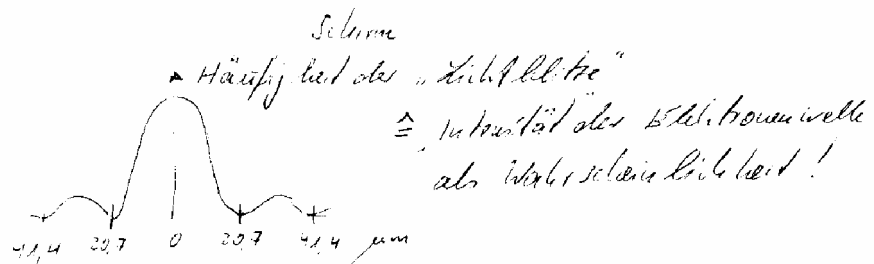 Schirm
Häufigkeit der „Lichtblitze"
≙ Intensität der Elektronenwelle
als Wahrscheinlichkeit!
41,4 20,7 0 20,7 41,4 µm